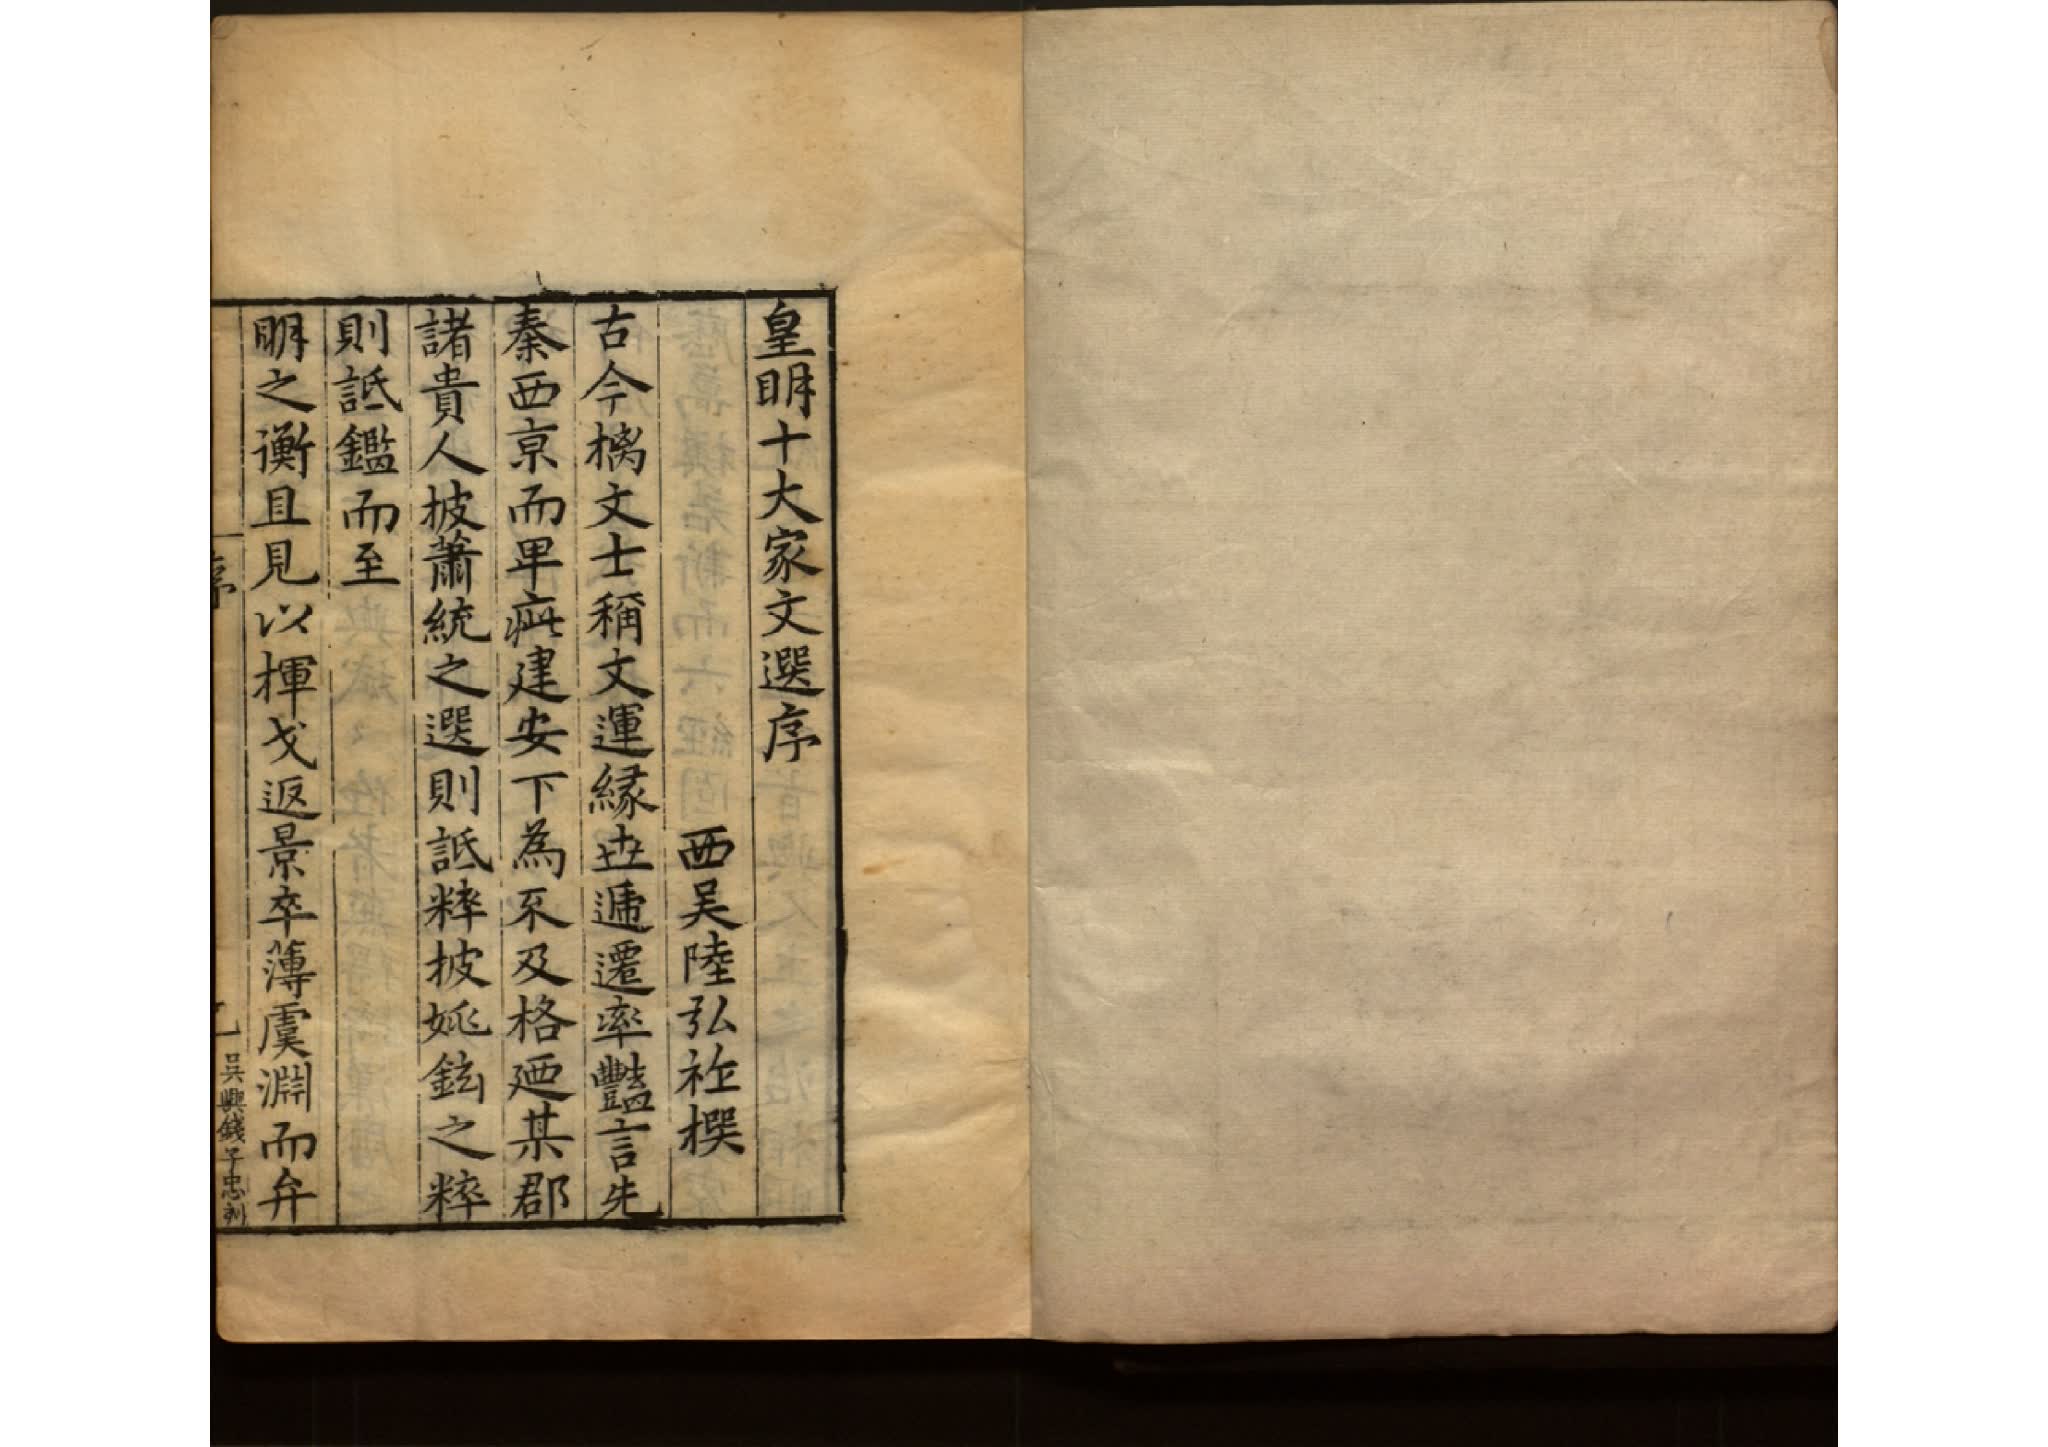 皇明十大家文選序
西吴陸弘祚撰
古今摛文士稱文運縁丗遞遷率豔言先
秦西亰而卑疵建安下為不及格廼某郡
諸貴人披蕭統之選則詆粹披姚鉉之粹
則詆鑑而至
明之衡且見以揮戈返景卒薄虞淵而弁
序
一
吴興錢子忠刻